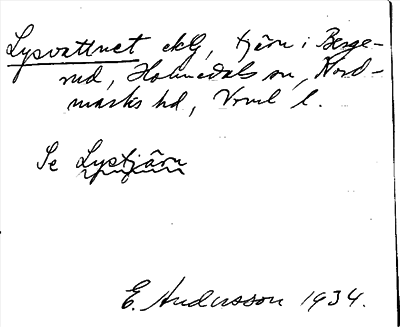 Lysvattnet ekl, tjärn i Berge-
rud, Holmedals sn, Nord-
marks hd, Vrml l.
Se Lystjärn
E. Andersson 1934.